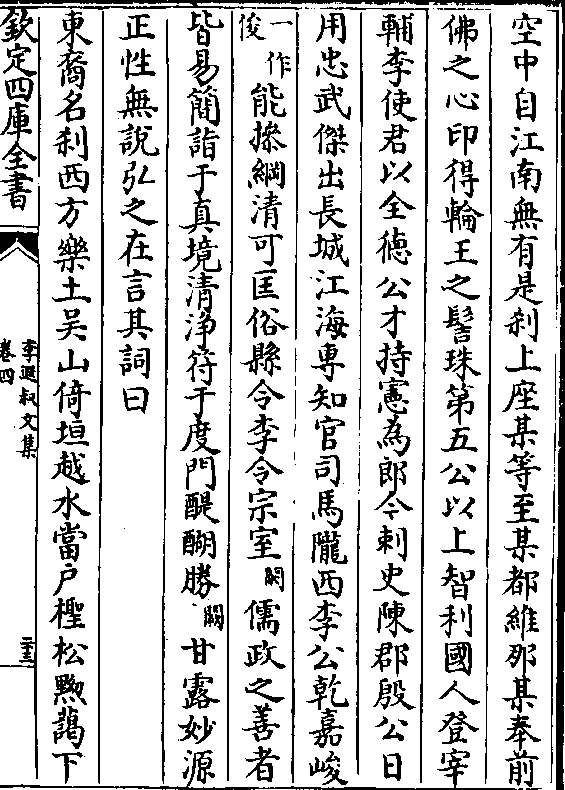 空中自江南無有是刹上座某等至某都維那某奉前
佛之心印得輪王之髻珠第五公以上智利國人登宰
輔李使君以全徳公才持憲為郎令刺史陳郡殷公日
用忠武傑出長城江海専知官司馬隴西李公乾嘉峻
一作俊能操綱清可匡俗縣令李令宗室闕儒政之善者
皆易簡詣于真境清浄符于度門醍醐勝闕甘露妙源
正性無說弘之在言其詞曰
東裔名刹西方樂土吴山倚垣越水當户檉松黝藹下
欽定四庫全書
李遐叔文集
卷四
二十三